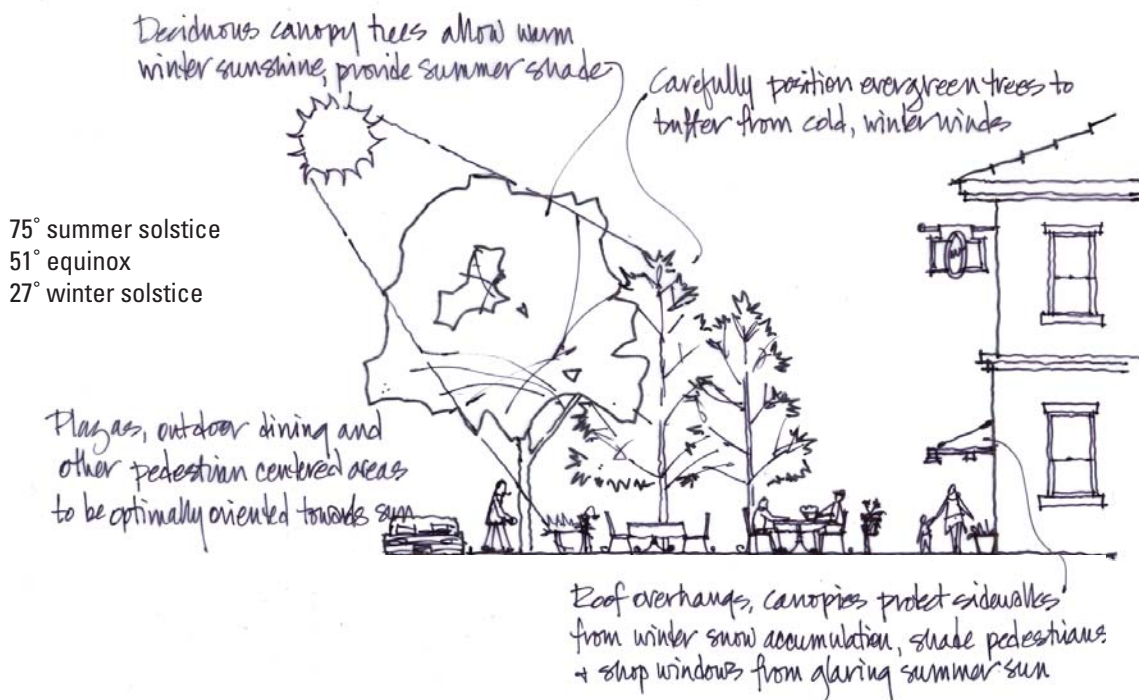 Deciduous canopy trees allow warm
winter sunshine, provide summer shade
Carefully position evergreen trees to
buffer from cold, winter winds
75° summer solstice
51° equinox
27° winter solstice
Plazas, outdoor dining and
other pedestrian centered areas
to be optimally oriented towards sun
Roof overhangs, canopies protect sidewalks
from winter snow accumulation, shade pedestrians
+ shop windows from glaring summer sun